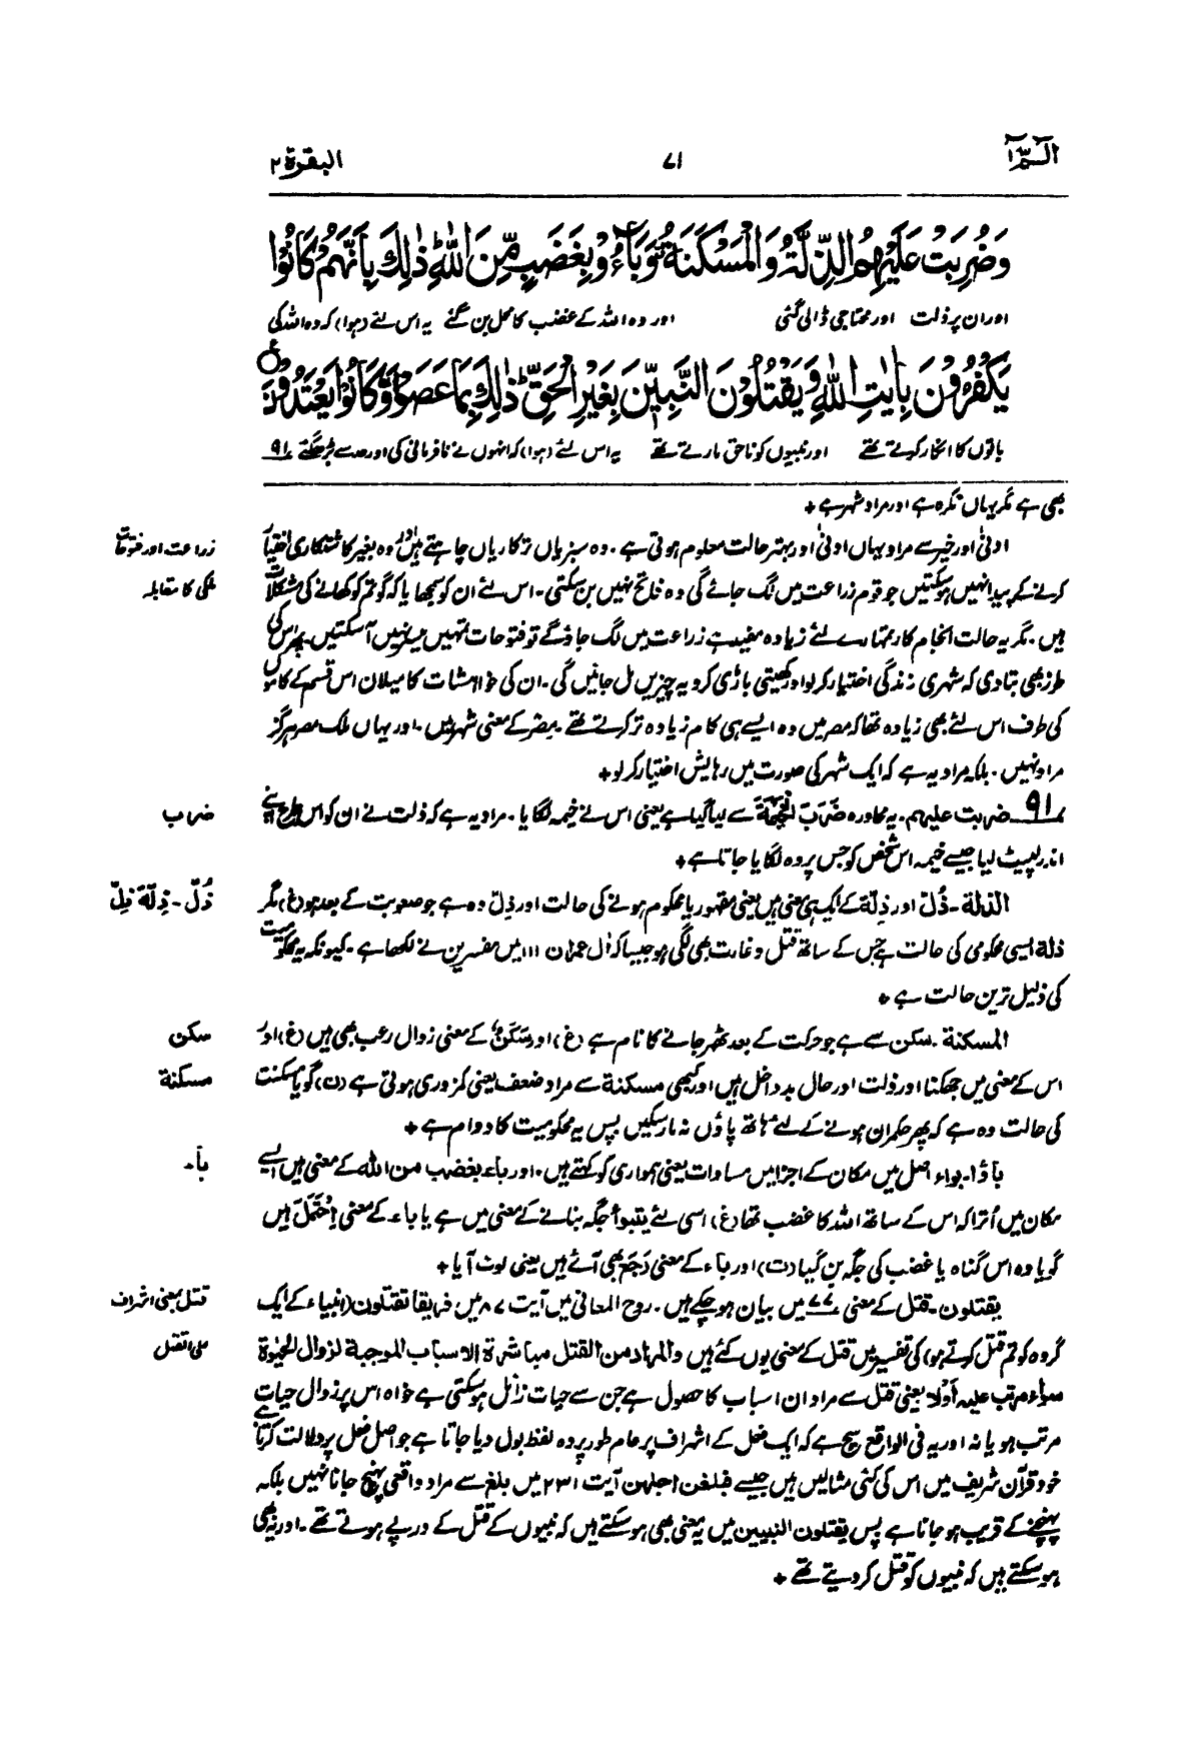 الٓـمّٓ ١
٧١
البقرة ٢
وَضُرِبَتْ عَلَيْهِمُ الذِّلَّةُ وَالْمَسْكَنَةُ وَبَآءُوْ بِغَضَبٍ مِّنَ اللّٰهِ ذٰلِكَ بِاَنَّهُمْ كَانُوْا
اور ان پر ذلت اور محتاجی ڈالی گئی اور وہ اللہ کے غضب کا محل بن گئے یہ اس لئے (ہوا) کہ وہ اللہ کی
يَكْفُرُوْنَ بِاٰيٰتِ اللّٰهِ وَيَقْتُلُوْنَ النَّبِيّٖنَ بِغَيْرِ الْحَقِّ ذٰلِكَ بِمَا عَصَوْا وَّكَانُوْا يَعْتَدُوْنَ ع
باتوں کا انکار کرتے تھے اور نبیوں کو ناحق مارتے تھے یہ اس لئے (ہوا) کہ انہوں نے نافرمانی کی اور حد سے بڑھ گئے ٩١
بھی ہے مگر یہاں نکرہ ہے اور مراد شہر ہے +
ادنیٰ اور خیر سے مراد یہاں ادنیٰ اور بہتر حالت معلوم ہوتی ہے۔ وہ سبزیاں ترکاریاں چاہتے ہیں اور وہ بغیر کاشتکاری اختیار
زراعت اور فتوحات
کرنے کے پیدا نہیں ہو سکتیں جو قوم زراعت میں لگ جائے گی وہ فاتح نہیں بن سکتی۔ اس لئے ان کو سمجھایا کہ گو تم کو کھانے کی مشکلات
ملکی کا مقابلہ
ہیں۔ مگر یہ حالت انجام کار تمہارے لئے زیادہ مفید ہے زراعت میں لگ جاؤ گے تو فتوحات تمہیں میسر نہیں آسکتیں۔ پھر اس کی
طرز بھی بتادی کہ شہری زندگی اختیار کر لو اور کھیتی باڑی کرو یہ چیزیں مل جائیں گی۔ ان کی خواہشات کا میلان اس قسم کے کاموں
کی طرف اس لئے بھی زیادہ تھا کہ مصر میں وہ ایسے ہی کام زیادہ تر کرتے تھے۔ مِصر کے معنی شہر ہیں۔ اور یہاں ملک مصر ہرگز
مراد نہیں۔ بلکہ مراد یہ ہے کہ ایک شہر کی صورت میں رہایش اختیار کر لو +
٩١ ضربت علیہم۔ یہ محاورہ ضَرَبَ الْخَيْمَةَ سے لیا گیا ہے یعنی اس نے خیمہ لگایا۔ مراد یہ ہے کہ ذلت نے ان کو اس طرح اپنے
ضراب
اندر لپیٹ لیا جیسے خیمہ اس شخص کو جس پر وہ لگایا جاتا ہے +
الذلة۔ ذُلّ اور ذِلّة کے ایک ہی معنی ہیں یعنی مقہور یا محکوم ہونے کی حالت اور ذِلّ وہ ہے جو صعوبت کے بعد ہو (غ) مگر
ذُلّ۔ ذِلّة ذِلّ
ذلة ایسی محکومی کی حالت ہے جس کے ساتھ قتل و غارت بھی لگی ہو جیسا کہ اٰل عمران ۱۱۱ میں مفسرین نے لکھا ہے۔ کیونکہ یہ محکومیت
کی ذلیل ترین حالت ہے +
المسکنة۔ سکن سے ہے جو حرکت کے بعد ٹھہر جانے کا نام ہے (غ) اور سَكَنٌ کے معنی زوال رعب بھی ہیں (غ) اور
سکن
اس کے معنی میں جھکنا اور ذلت اور حال بد داخل ہیں اور کبھی مسکنة سے مراد ضعف یعنی کمزوری ہوتی ہے (ن) گویا مسکنت
مسکنة
کی حالت وہ ہے کہ پھر حکمران ہونے کے لئے ہاتھ پاؤں نہ مار سکیں پس یہ محکومیت کا دوام ہے +
باؤا۔ بواء اصل میں مکان کے اجزا میں مساوات یعنی ہمواری کو کہتے ہیں۔ اور باء بغضب من اللہ کے معنی ہیں ایسے
بآء
مکان میں اُترا کہ اس کے ساتھ اللہ کا غضب تھا (غ) اسی لئے یتبوأ جگہ بنانے کے معنی میں ہے یا باء کے معنی اِحْتَمَلَ ہیں
گویا وہ اس گناہ یا غضب کی جگہ بن گیا (ت) اور بآء کے معنی رَجَعَ بھی آئے ہیں یعنی لوٹ آیا +
یقتلون۔ قتل کے معنی ٧٧ میں بیان ہو چکے ہیں۔ روح المعانی میں آیت ۸۷ میں فریقا تقتلون (انبیاء کے ایک
قتل بمعنی اشراف
گروہ کو تم قتل کرتے ہو) کی تفسیر میں قتل کے معنی یوں کئے ہیں والمراد من القتل مباشرة الاسباب الموجبة لزوال الحیٰوة
علی القتل
سواء مترتب علیہ اَوْلا یعنی قتل سے مراد ان اسباب کا حصول ہے جن سے حیات زائل ہو سکتی ہے خواہ اس پر زوال حیات
مرتب ہو یا نہ اور یہ فی الواقع سچ ہے کہ ایک فعل کے اشراف پر عام طور پر وہ لفظ بول دیا جاتا ہے جو اصل فعل پر دلالت کرتا ہے
خود قرآن شریف میں اس کی کئی مثالیں ہیں جیسے فبلغن اجلہن آیت ۲۳۱ میں بلغ سے مراد واقعی پہنچ جانا نہیں بلکہ
پہنچنے کے قریب ہو جانا ہے پس یقتلون النبیین میں یہ معنی بھی ہو سکتے ہیں کہ نبیوں کے قتل کے درپے ہوتے تھے۔ اور یہ بھی
ہو سکتے ہیں کہ نبیوں کو قتل کر دیتے تھے +